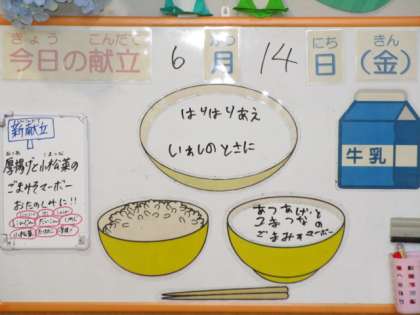 きょう こんだて
今日の献立
6
がつ
月
14
にち
日
きん
(金)
はりはりあえ
いわしのとさに
牛乳
新献立
あつあ こまつな
厚揚げと小松菜の
ごまみそマーボー
おたのしみに!!
小松菜
あつあげと
こまつなの
ごまみそマーボー